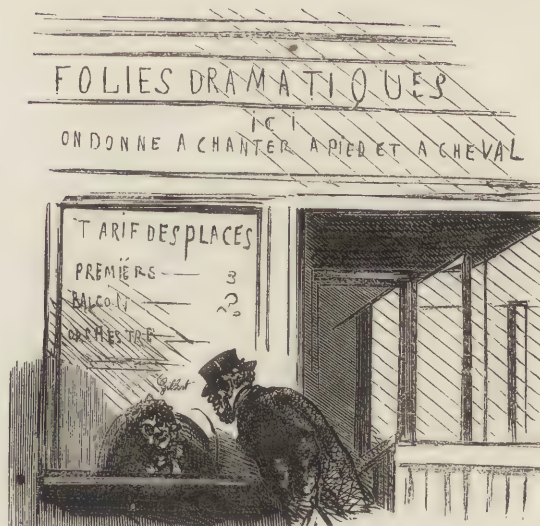 FOLIES DRAMATIQUES
ICI
ON DONNE A CHANTER A PIED ET A CHEVAL
TARIF DES PLACES
PREMIÈRS — 3
BALCON — 2
ORCHESTRE —